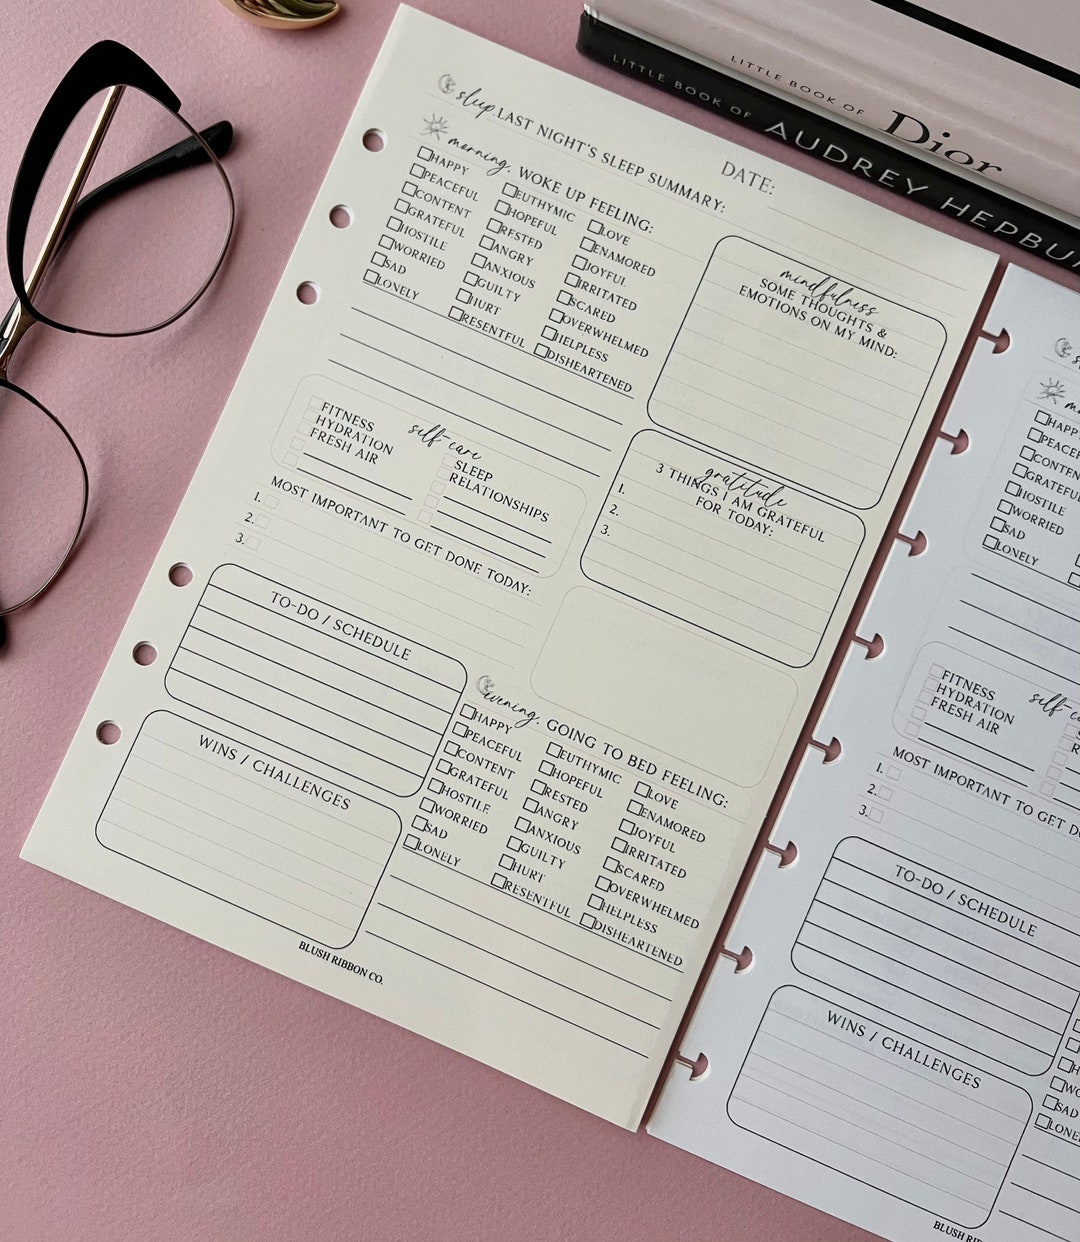 LITTLE BOOK OF Dior
LITTLE BOOK OF AUDREY HEPBU
DATE:
sleep. LAST NIGHT'S SLEEP SUMMARY:
morning. WOKE UP FEELING:
HAPPY
PEACEFUL
CONTENT
GRATEFUL
HOSTILE
WORRIED
SAD
LONELY
EUTHYMIC
HOPEFUL
RESTED
ANGRY
ANXIOUS
GUILTY
HURT
RESENTFUL
LOVE
ENAMORED
JOYFUL
IRRITATED
SCARED
OVERWHELMED
HELPLESS
DISHEARTENED
mindfulness
SOME THOUGHTS &
EMOTIONS ON MY MIND:
self-care
FITNESS
HYDRATION
FRESH AIR
SLEEP
RELATIONSHIPS
gratitude
3 THINGS I AM GRATEFUL
FOR TODAY:
1.
2.
3.
MOST IMPORTANT TO GET DONE TODAY:
1.
2.
3.
TO-DO / SCHEDULE
WINS / CHALLENGES
evening. GOING TO BED FEELING:
HAPPY
PEACEFUL
CONTENT
GRATEFUL
HOSTILE
WORRIED
SAD
LONELY
EUTHYMIC
HOPEFUL
RESTED
ANGRY
ANXIOUS
GUILTY
HURT
RESENTFUL
LOVE
ENAMORED
JOYFUL
IRRITATED
SCARED
OVERWHELMED
HELPLESS
DISHEARTENED
BLUSH RIBBON CO.
HAPP
PEACE
CONTEN
GRATEFU
HOSTILE
WORRIED
SAD
LONELY
FITNESS
HYDRATION
FRESH AIR
self-c
MOST IMPORTANT TO GET D
1.
2.
3.
TO-DO / SCHEDULE
WINS / CHALLENGES
H
WO
SAD
LONE
BLUSH RIB